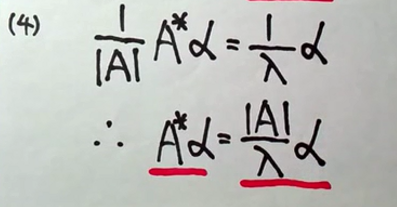 (4) 1/|A| A*α = 1/λ α
∴ A*α = |A|/λ α